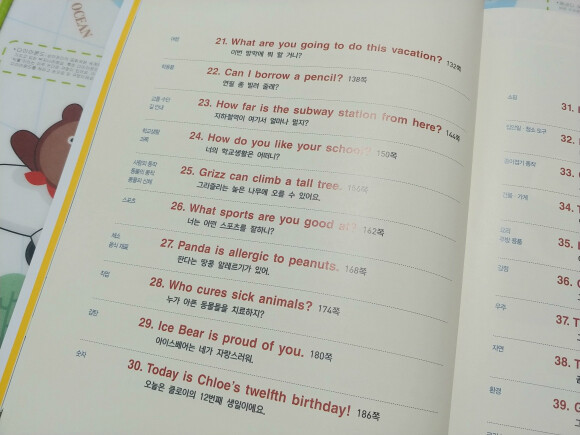 OCEAN
여행
21. What are you going to do this vacation? 132쪽
이번 방학에 뭐 할 거니?
학용품
22. Can I borrow a pencil? 138쪽
연필 좀 빌려 줄래?
교통 수단
길 안내
23. How far is the subway station from here? 144쪽
지하철역이 여기서 얼마나 멀지?
학교생활
과목
24. How do you like your school? 150쪽
너의 학교생활은 어떠니?
사람의 동작
동물의 동작
동물의 신체
25. Grizz can climb a tall tree. 156쪽
그리즐리는 높은 나무에 오를 수 있어요.
스포츠
26. What sports are you good at? 162쪽
너는 어떤 스포츠를 잘하니?
채소
음식 재료
27. Panda is allergic to peanuts. 168쪽
판다는 땅콩 알레르기가 있어.
직업
28. Who cures sick animals? 174쪽
누가 아픈 동물들을 치료하지?
감탄
29. Ice Bear is proud of you. 180쪽
아이스베어는 네가 자랑스러워.
숫자
30. Today is Chloe's twelfth birthday! 186쪽
오늘은 클로이의 12번째 생일이에요.
31.
32.
33.
34. T
35.
36.
37. T
우주
38. T
자연
39. G
환경